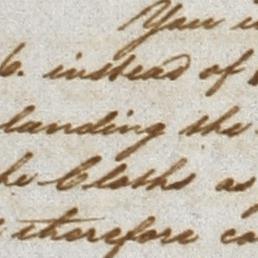 You
6. instead of
landing the
the Cloths as
therefore